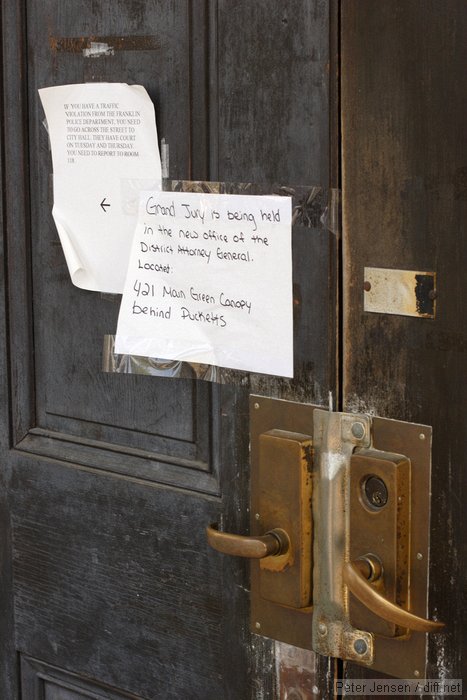 IF YOU HAVE A TRAFFIC
VIOLATION FROM THE FRANKLIN
POLICE DEPARTMENT, YOU NEED
TO GO ACROSS THE STREET TO
CITY HALL. THEY HAVE COURT
ON TUESDAY AND THURSDAY.
YOU NEED TO REPORT TO ROOM
118.
←
Grand Jury is being held
in the new office of the
District Attorney General.
Located:
421 Main Green Canopy
behind Pucketts
Peter Jensen / diff.net